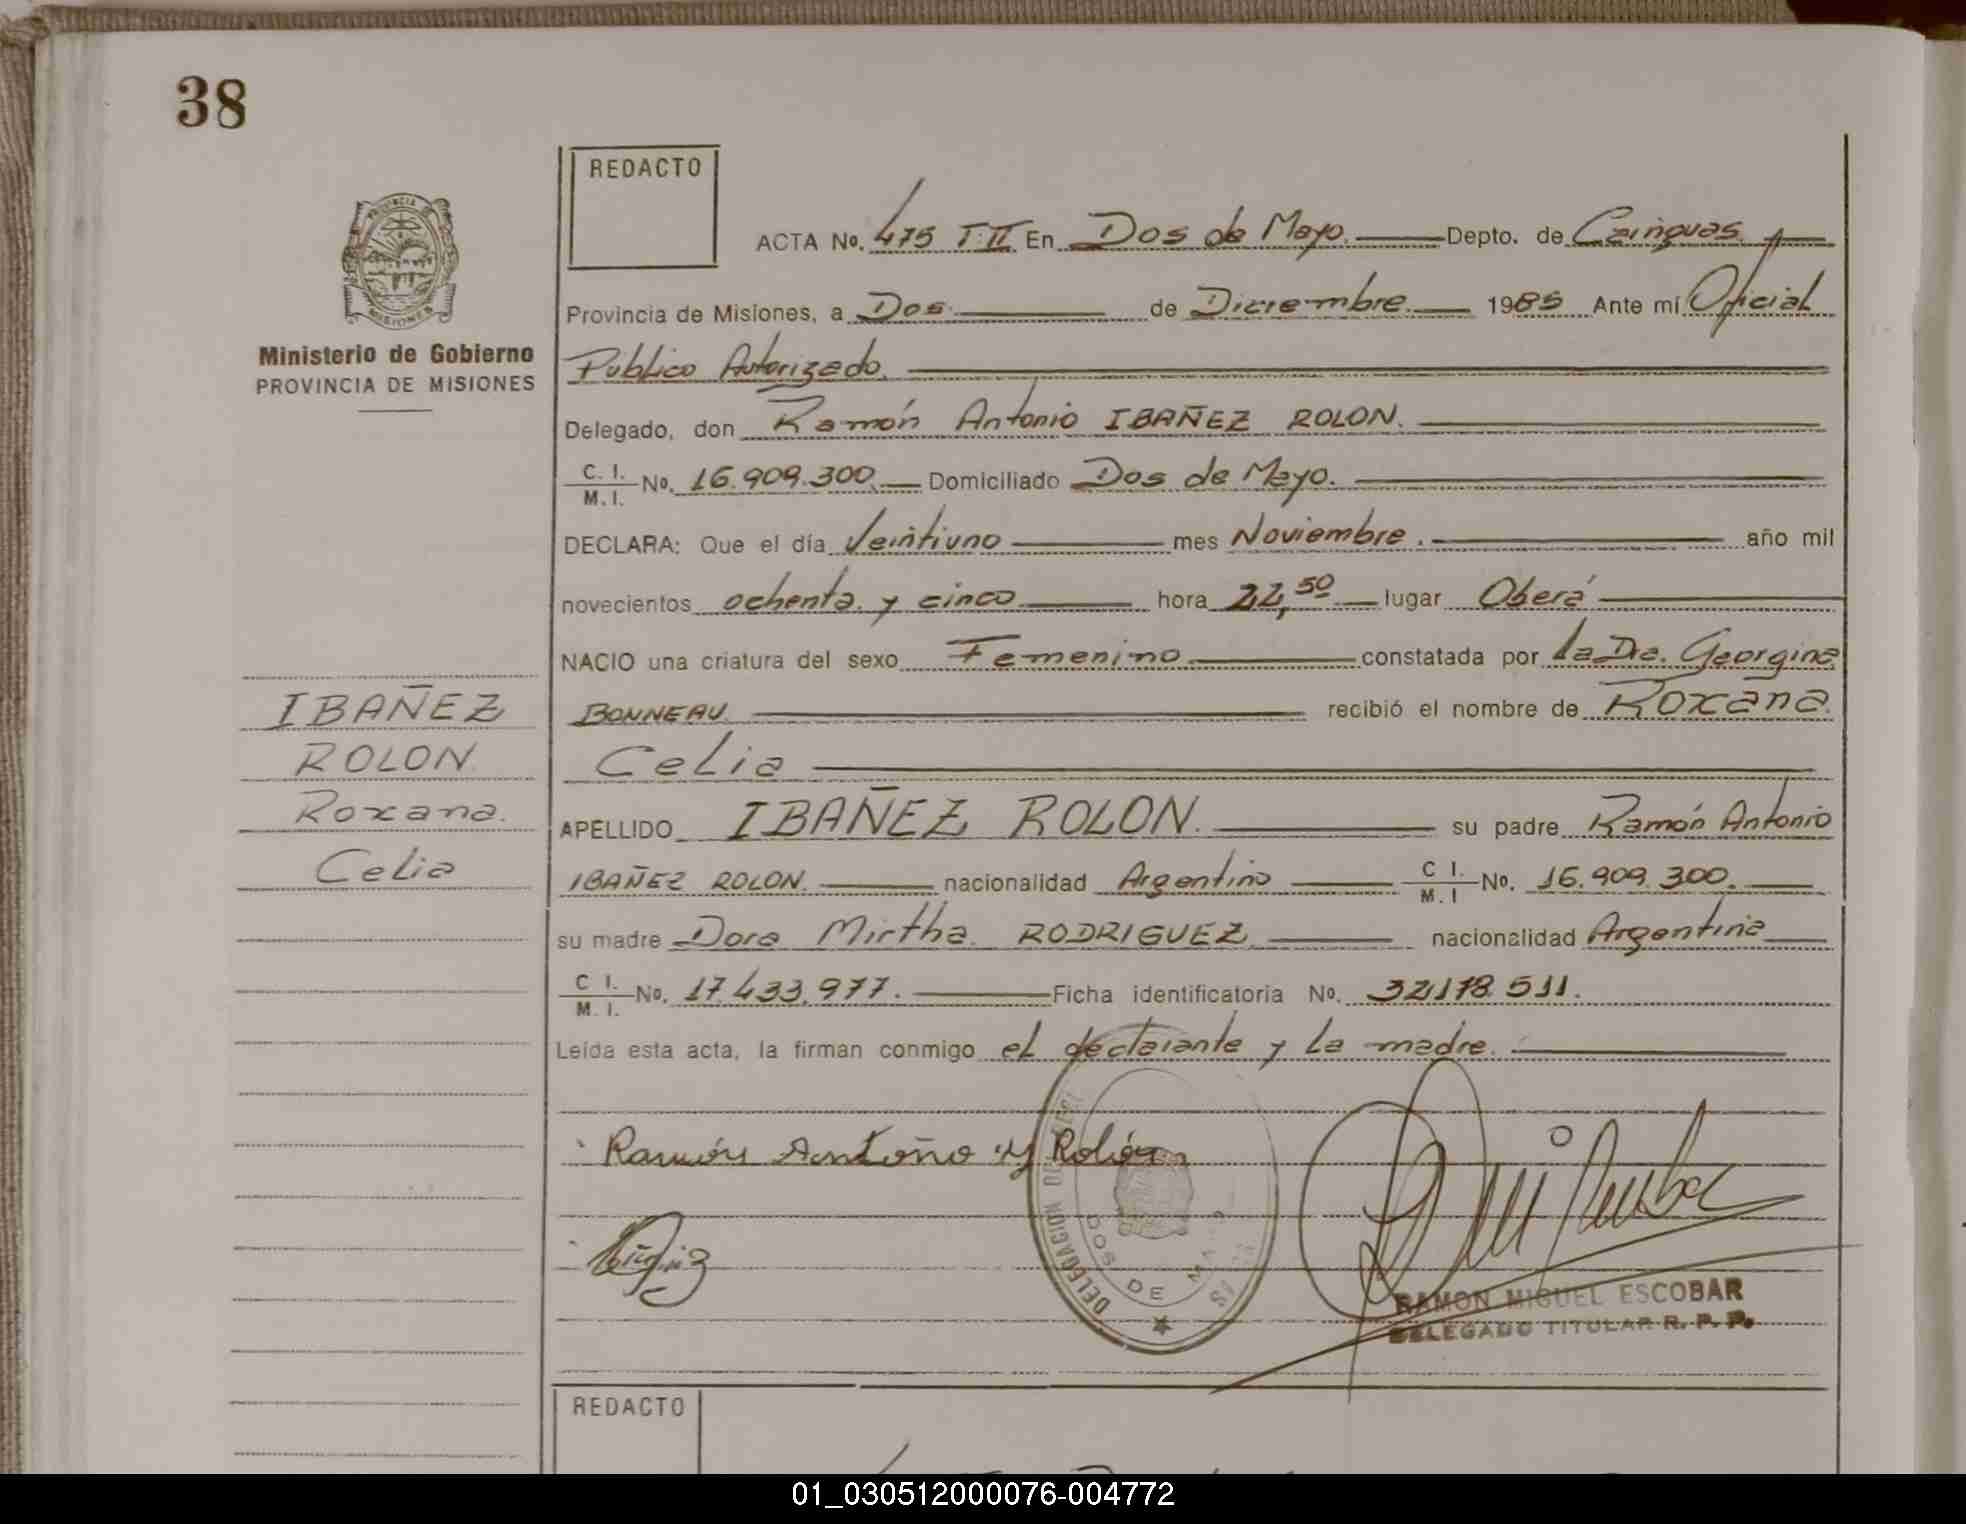 38
REDACTO
PROVINCIA DE
MISIONES
Ministerio de Gobierno
PROVINCIA DE MISIONES
ACTA No. 475 T:II En Dos de Mayo. Depto. de Cainguas
Provincia de Misiones, a Dos de Diciembre. 1985 Ante mí Oficial
Público Autorizado.
Delegado, don Ramón Antonio IBAÑEZ ROLON.
C. I.
M. I. No. 16.909.300 Domiciliado Dos de Mayo.
DECLARA: Que el día Veintiuno mes Noviembre. año mil
novecientos ochenta y cinco hora 22,50 lugar Oberá
NACIO una criatura del sexo Femenino constatada por la Dra. Georgina
BONNEAU. recibió el nombre de Roxana
Celia
APELLIDO IBAÑEZ ROLON. su padre Ramón Antonio
IBAÑEZ ROLON. nacionalidad Argentino C I. M. I No. 16.909.300.
su madre Dora Mirtha RODRIGUEZ nacionalidad Argentina
C I. M. I. No. 17.433.977. Ficha identificatoria No. 32.178.511.
Leída esta acta, la firman conmigo el declarante y la madre.
IBAÑEZ
ROLON
Roxana.
Celia
Ramón Antoño Y Rolón
DELEGACION DEL
DOS DE MAYO
RAMON MIGUEL ESCOBAR
DELEGADO TITULAR R. P. P.
REDACTO
01_030512000076-004772